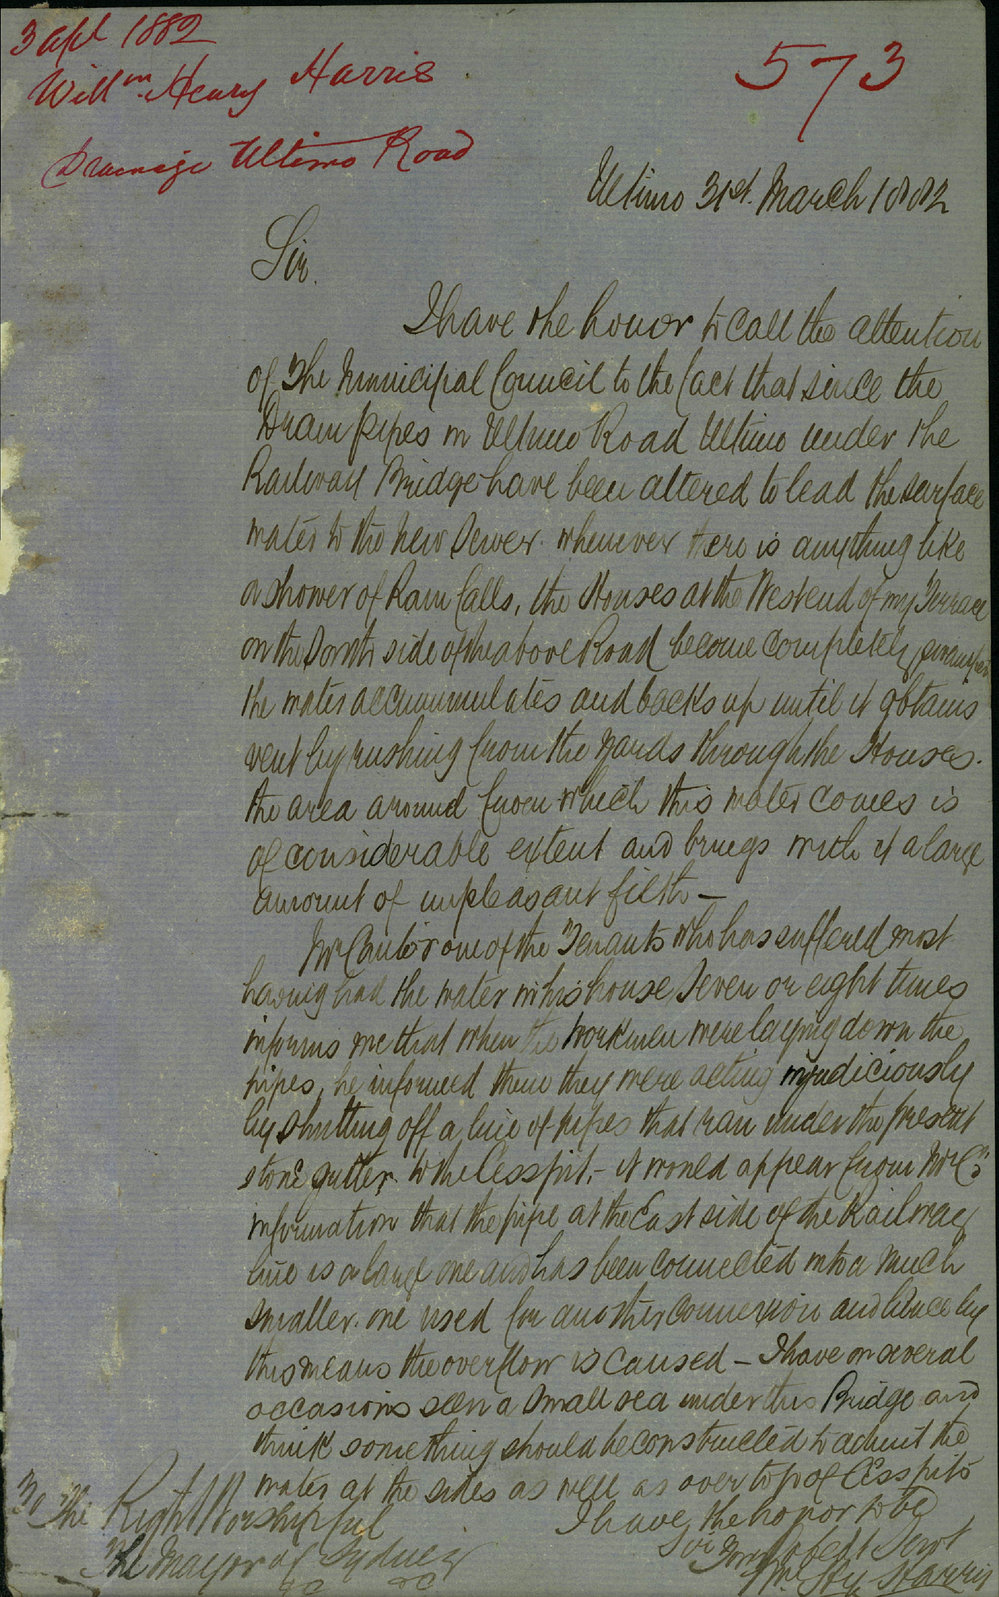 3 Apl 1882
Willm Henry Harris
Drainage Ultimo Road
573
Ultimo 31st. March 1882
Sir.
I have the honor to call the attention
of The Municipal Council to the fact that since the
Drain pipes in Ultimo Road Ultimo under the
Railway Bridge have been altered to lead the surface
water to the new Sewer. whenever there is anything like
a shower of Rain falls, the Houses at the West end of my Terrace
on the South side of the above Road become completely swamped
the water accummulates and backs up until it obtains
vent by rushing from the yards through the Houses.
the area around from which this water comes is
of considerable extent and brings with it a large
amount of unpleasant filth —
Mr one of the Tenants who has suffered most
having had the water in his house, Seven or eight times
informs me that when the workmen were laying down the
pipes, he informed them they were acting injudiciously
by shutting off a line of pipes that ran under the present
stone gutter to the Cesspit, – it would appear from Mr C's
information that the pipe at the East side of the Railway
line is a large one and has been connected into a much
smaller one used for another connexion and hence by
this means the overflow is caused – I have on several
occasions seen a small sea under this Bridge and
think something should be constructed to admit the
water at the sides as well as over top of Cesspits
I have the honor to be
Sir Your Obedt Servt
Wm Hy Harris
To The Right Worshipful
The Mayor of Sydney
&c &c